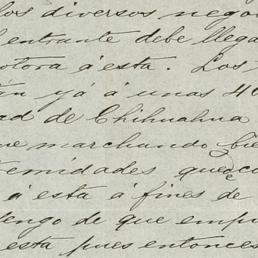 los diversos nego
entrante debe llega
otora á esta. Los
tán yá á unas 40
ad de Chihuahua
ue marchando bie
emidades que
á esta á fines de
tengo de que emp
esta pues entonces